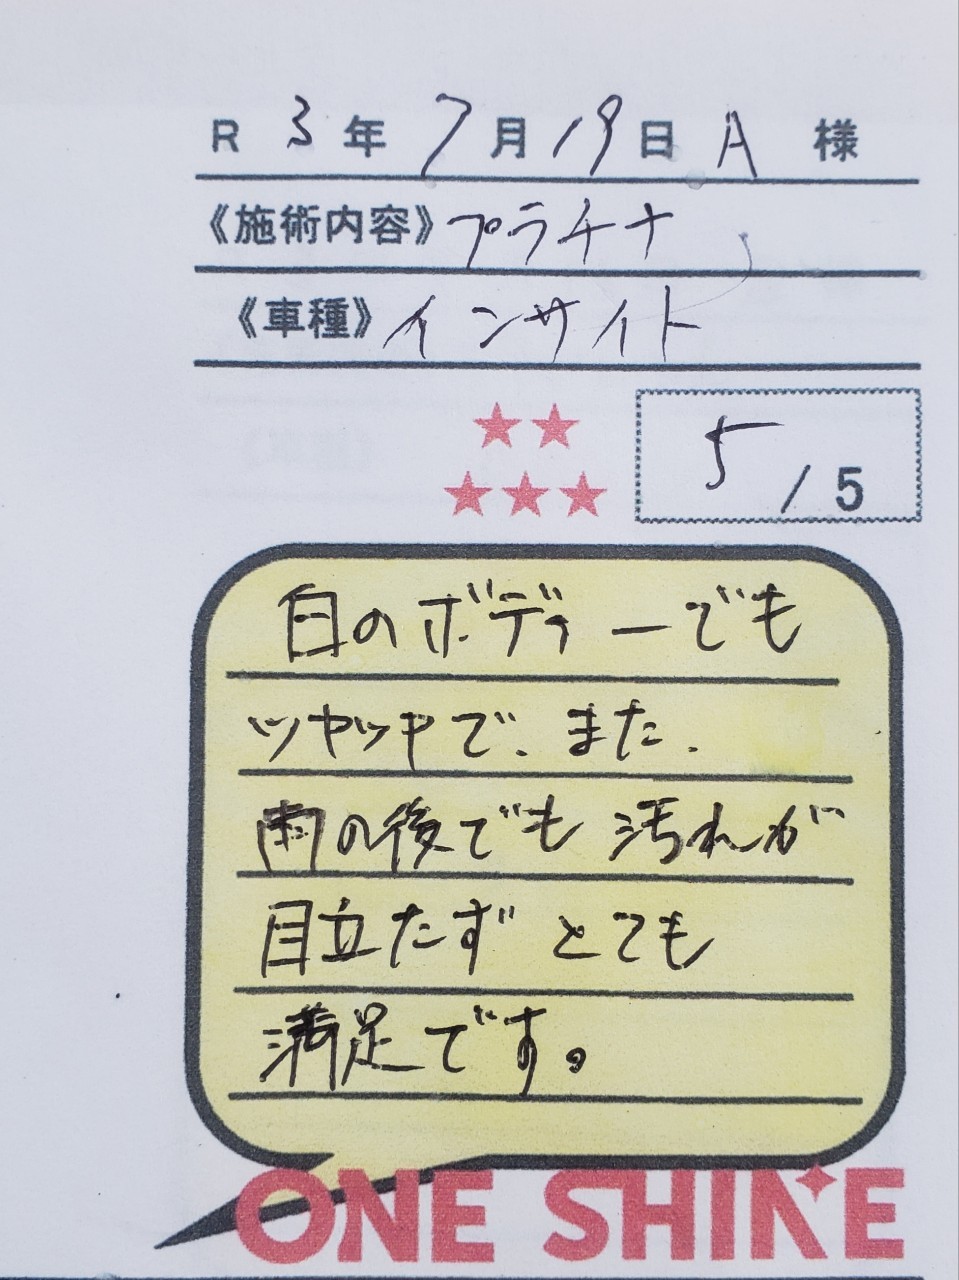 R 3年 7月19日 A 様
《施術内容》プラチナ
《車種》インサイト
5/5
白のボディーでも
ツヤツヤで、また、
雨の後でも汚れが
目立たずとても
満足です。
ONE SHINE